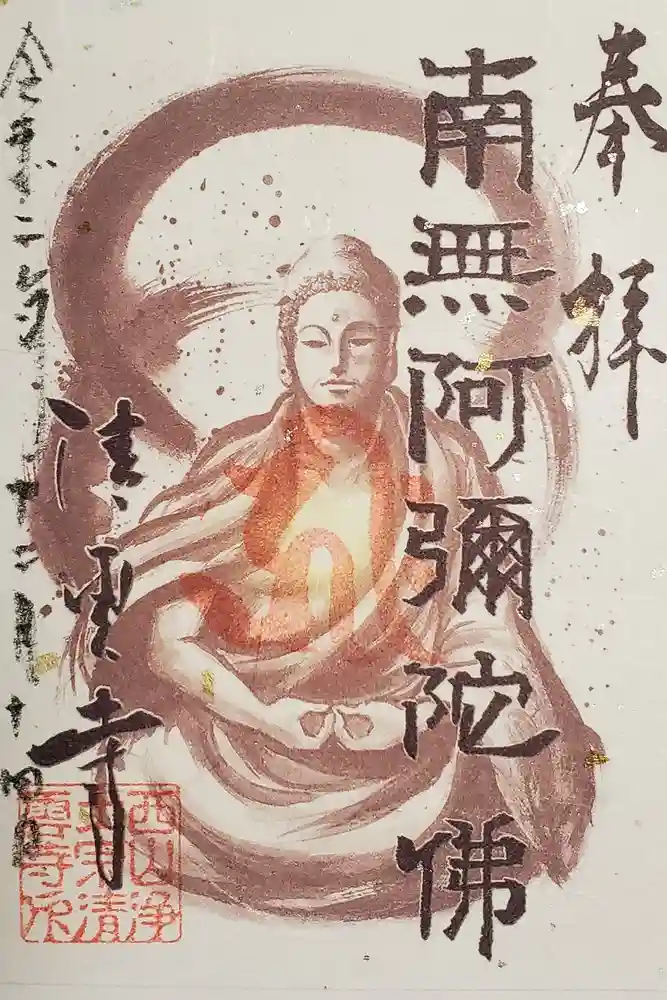 奉拝
南無阿彌陀佛
清雲寺
令和二年十二月
西山浄
土宗清
雲寺印